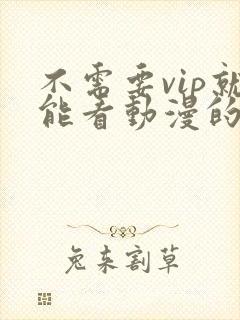 不需要vip就
能看動漫的
兔来割草